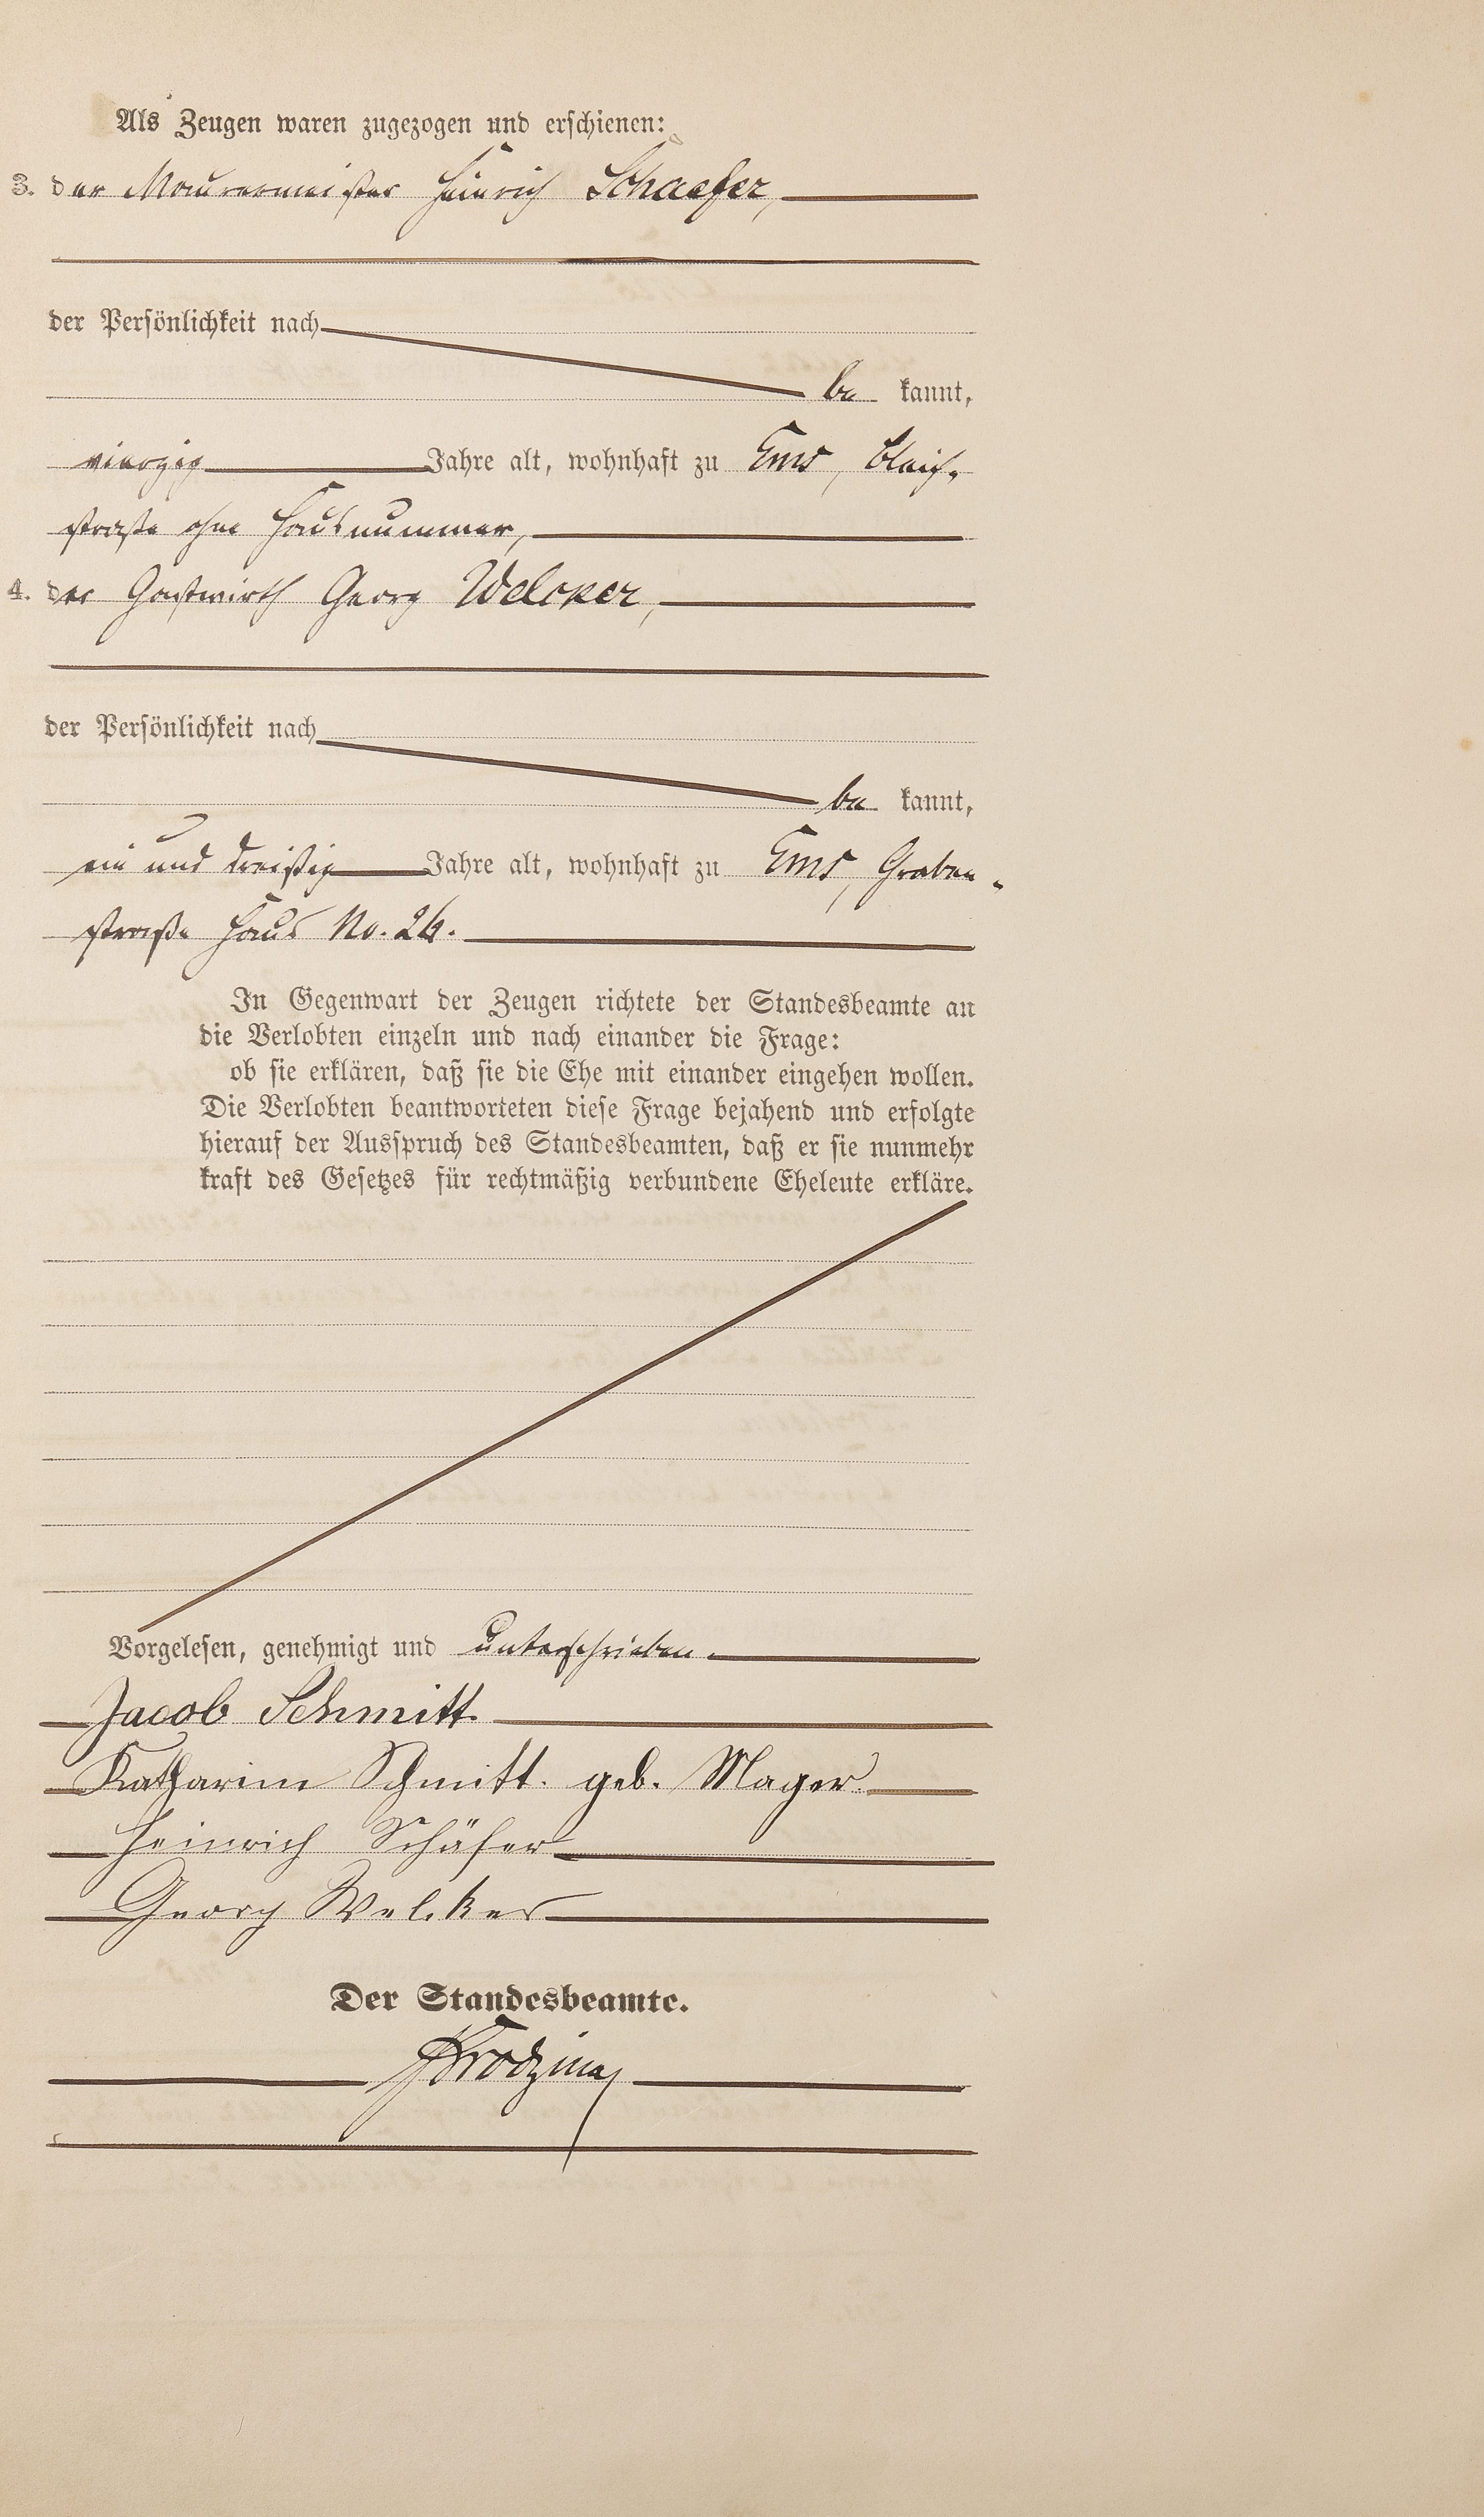 Als Zeugen waren zugezogen und erschienen:
3. der Maurermeister Heinrich Schaefer,
der Persönlichkeit nach
be kannt,
vierzig Jahre alt, wohnhaft zu Ems, Bleich-
straße ohne Hausnummer,
4. der Gastwirth Georg Welcker,
der Persönlichkeit nach
be kannt,
ein und dreißig Jahre alt, wohnhaft zu Ems, Graben-
straße Haus No. 26.
In Gegenwart der Zeugen richtete der Standesbeamte an
die Verlobten einzeln und nach einander die Frage:
ob sie erklären, daß sie die Ehe mit einander eingehen wollen.
Die Verlobten beantworteten diese Frage bejahend und erfolgte
hierauf der Ausspruch des Standesbeamten, daß er sie nunmehr
kraft des Gesetzes für rechtmäßig verbundene Eheleute erkläre.
Vorgelesen, genehmigt und unterschrieben.
Jacob Schmitt
Katharina Schmitt. geb. Mager
Heinrich Schäfer
Georg Welcker
Der Standesbeamte.